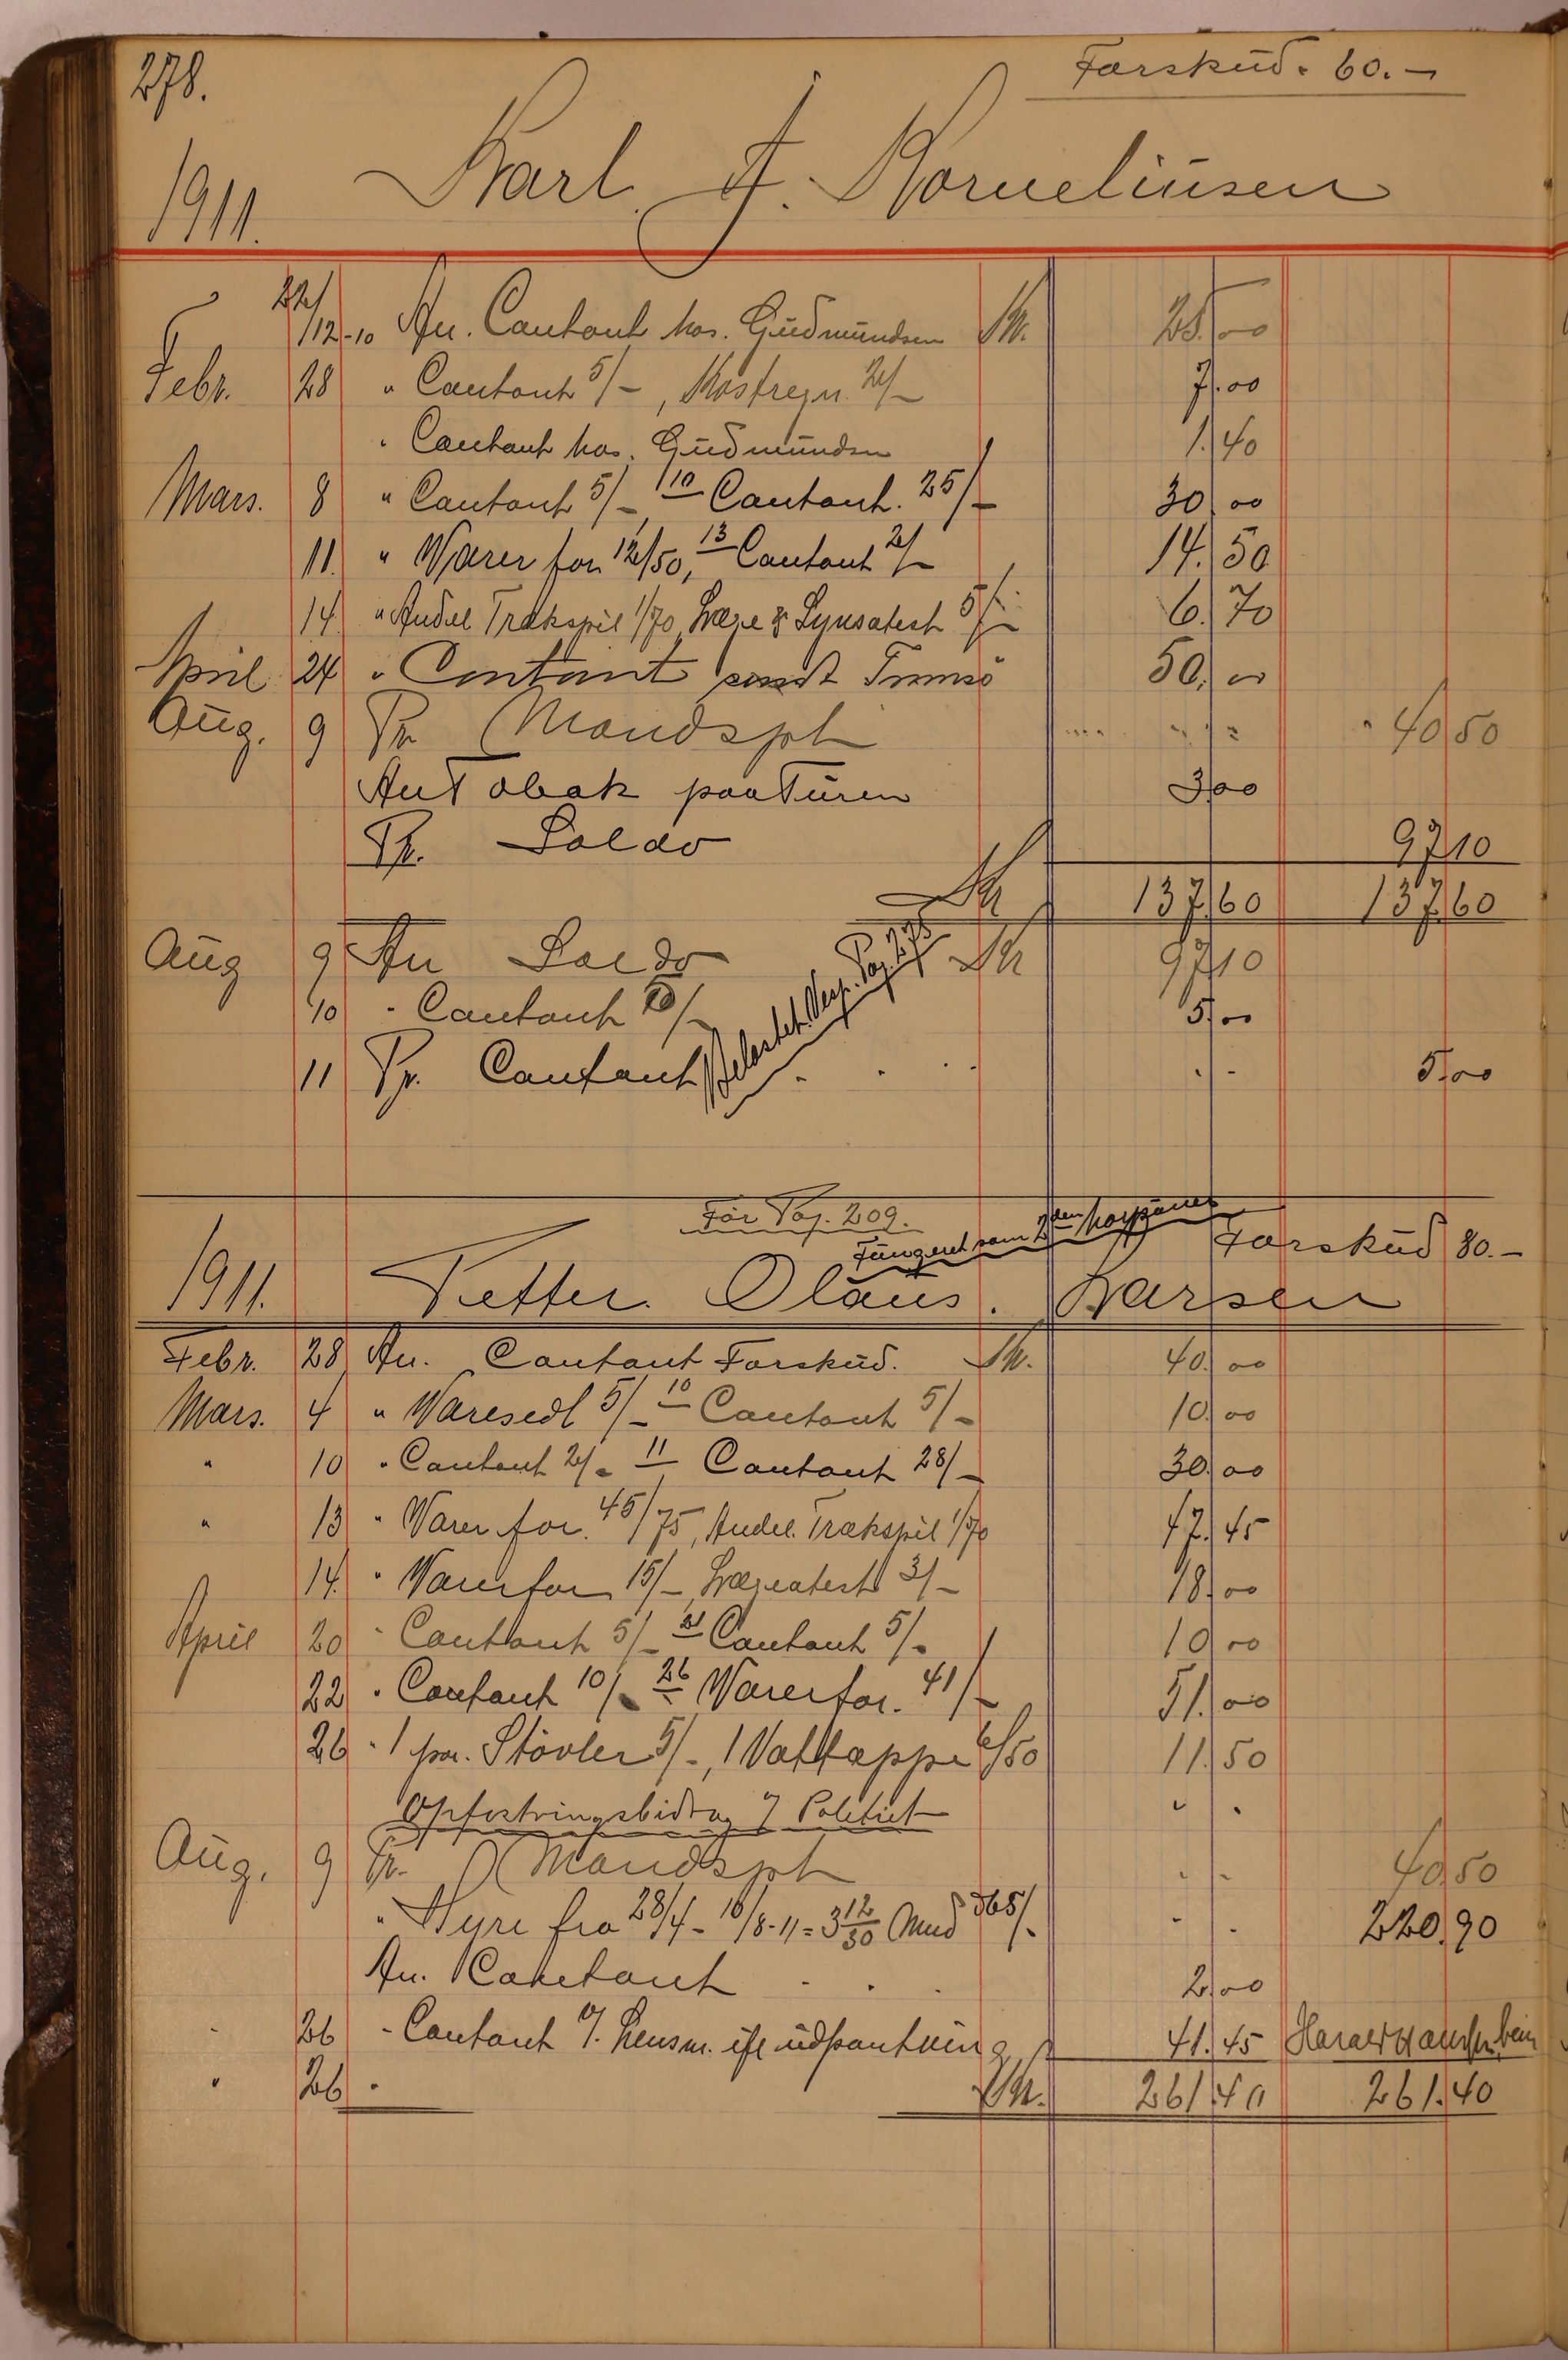 278.
Forskud. 60.-
1911. Karl. A. Korneliusen
22/12-10 An. Contant hos. Gudmundsen Kr. 25.00
Febr. 28 " Contant 5/-, Kostregn. 2/- 7.00
" Contant hos. Gudmundsen 1.40
Mars. 8 " Contant 5/-, 10 Contant. 25/- 30.00
11. " Varer for 12/50, 13 Contant 2/- 14.50
14. " Andel Trækspil 1/70, Læge & Synsatest 5/- 6.70
April 24 " Contant sendt Tromsö 50.00
Aug. 9 Pr. Mandspt " " 40 50
An Tobak paa Turen 3 00
Pr. Saldo 97 10
Kr 137.60 137.60
Aug 9 An Saldo Kr 97 10
10 - Contant 5/- 5.00
11 Pr. Contant Belastet. Pag. 275 - - 5.00
Før Pag. 209.
Fungeret som 2den
Forskud 80.-
1911. Petter. Olaus. Larsen
Febr. 28 An. Contant Forskud. Kr. 40.00
Mars. 4 " Varesedl 5/- 10 Contant 5/- 10.00
" 10 " Contant 2/- 11 Contant 28/- 30.00
" 13 " Varer for. 45/75, Andel. Trækspil 1/70 47.45
14. " Varer for 15/-, Lægeatest 3/- 18.00
April 20 " Contant 5/- 21 Contant 5/- 10.00
22 " Contant 10/- 26 Varer for. 41/- 51.00
26 " 1 par. Støvler 5/-, 1 Vattæppe 6/50 11.50
Opfostringsbidrag t/ Politiet " "
Aug. 9 Pr. Mandspt - - 40.50
" Hyre fra 28/4 - 10/8-11 = 3 12/30 Mnd 365/- - - 220.90
An. Contant 2.00
" 26 - Contant t/. Lensm. ifl udpantning 41.45
" 26 " Kr. 261.40 261.40